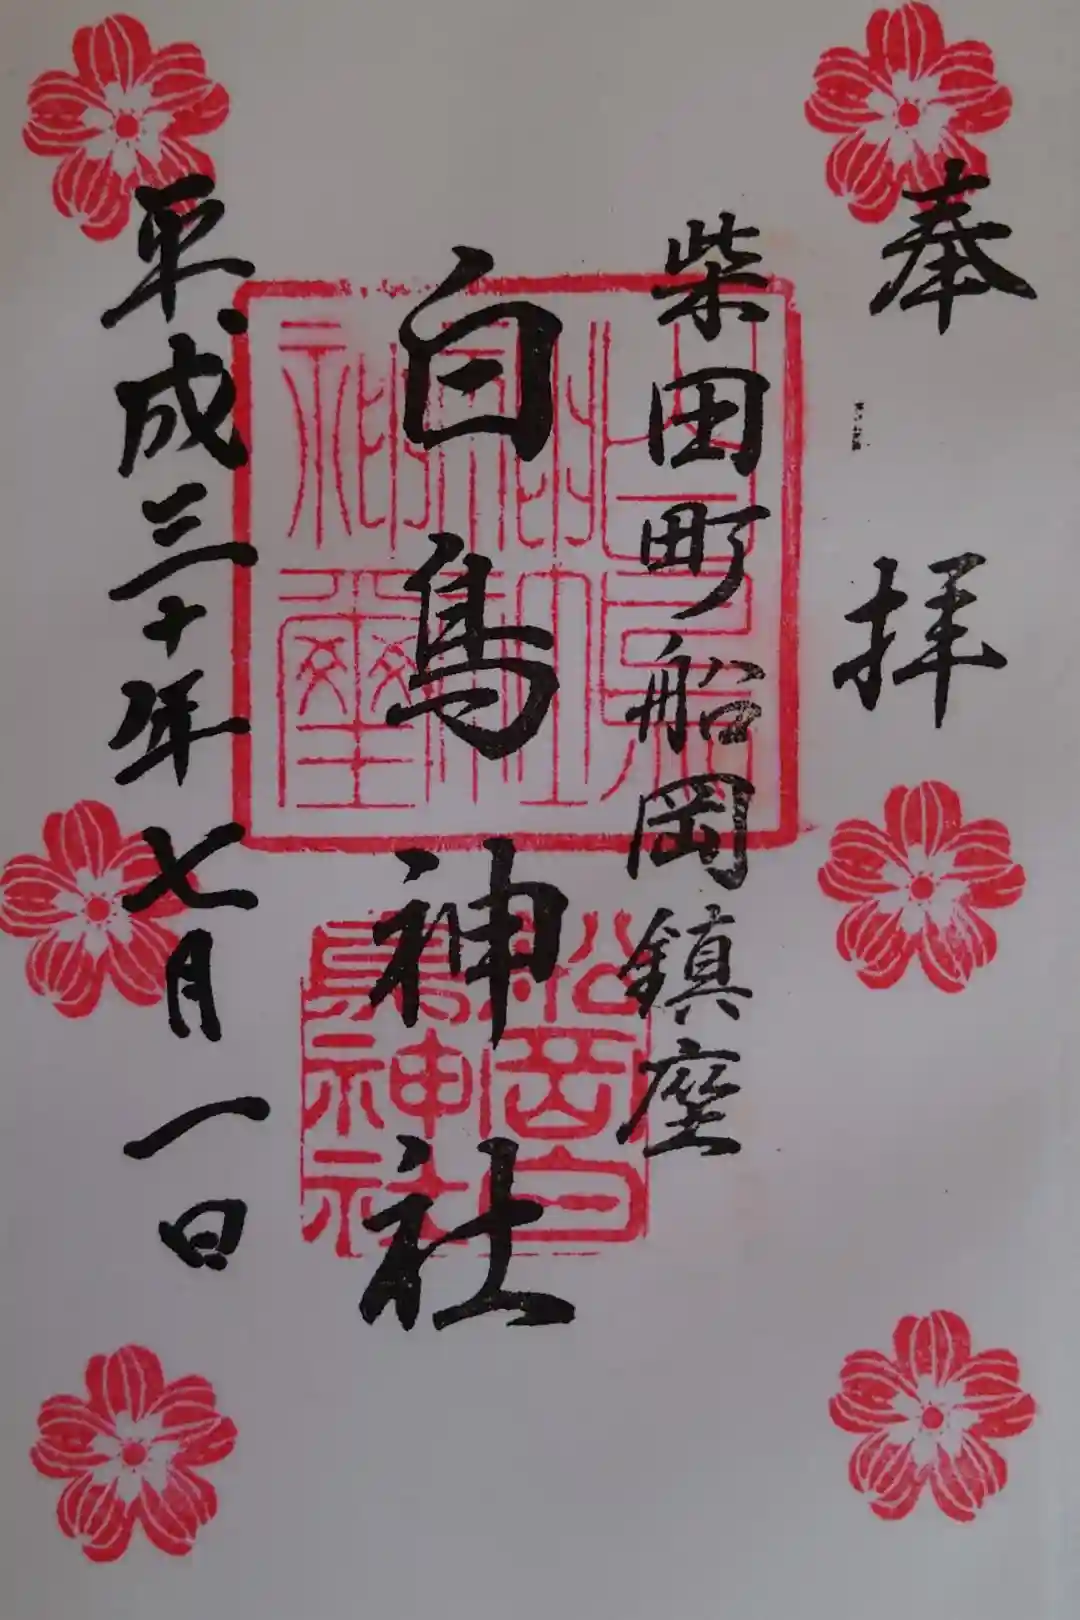 奉拝
柴田町船岡鎮座
白鳥神社
平成三十年七月一日
船岡白
鳥神社